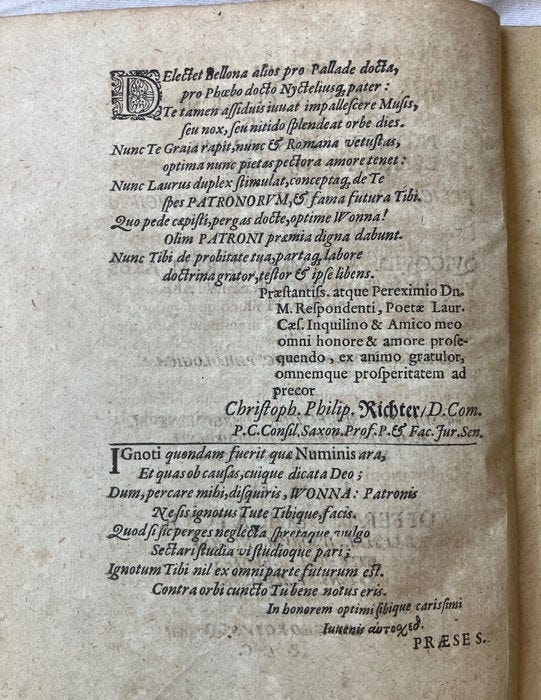 DElectet Bellona alios pro Pallade docta,
pro Phœbo docto Nycteliusq; pater:
Te tamen assiduis iuvat impallescere Musis,
seu nox, seu nitido splendeat orbe dies.
Nunc Te Graia rapit, nunc & Romana vetustas,
optima nunc pietas pectora amore tenet:
Nunc Laurus duplex stimulat, conceptaq; de Te
spes PATRONORVM, & fama futura Tibi.
Quo pede cæpisti, pergas docte, optime Wonna!
Olim PATRONI præmia digna dabunt.
Nunc Tibi de probitate tua, partaq; labore
doctrina grator, testor & ipse libens.
Præstantiss. atque Pereximio Dn.
M. Respondenti, Poetæ Laur.
Cæs. Inquilino & Amico meo
omni honore & amore prose-
quendo, ex animo gratulor,
omnemque prosperitatem ad
precor
Christoph. Philip. Richter/D. Com.
P. C. Consil. Saxon. Prof. P. & Fac. Jur. Sen.
IGnoti quondam fuerit quæ Numinis ara,
Et quas ob causas, cuique dicata Deo;
Dum, percare mihi, disquiris, WONNA: Patronis
Ne sis ignotus Tute Tibique, facis.
Quod si sic perges neglecta spretaque vulgo
Sectari studia vi studioque pari;
Ignotum Tibi nil ex omni parte futurum est.
Contra orbi cuncto Tu bene notus eris.
In honorem optimi sibique carissimi
Iuvenis αυτοχεδ.
PRÆSES.